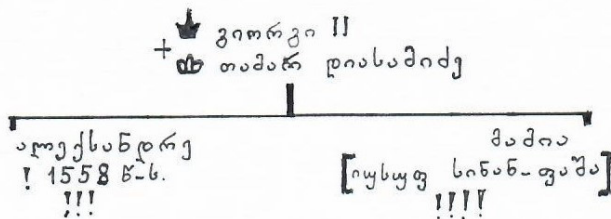 გიორგი II
+ თამარ დიასამიძე
ალექსანდრე
! 1558 წ-ს.
!!!
მამია
[იუსუფ სინან-ფაშა]
!!!!